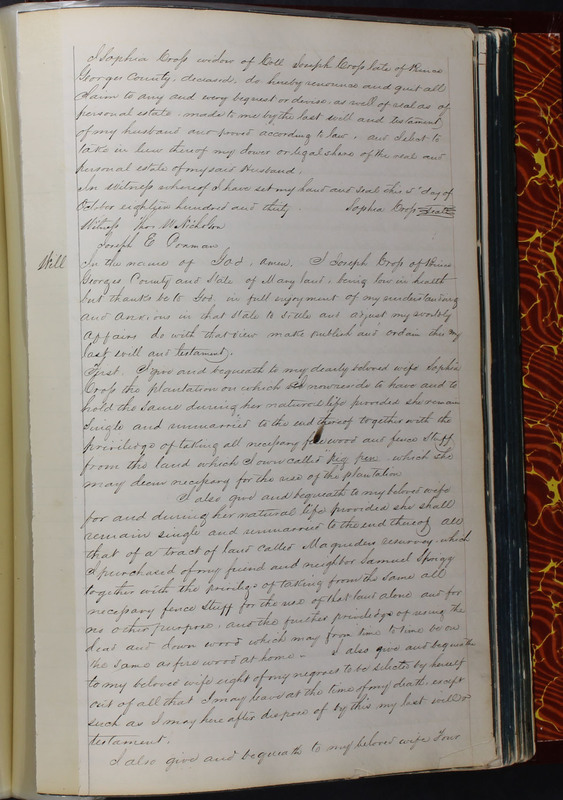 I Sophia Cross widow of Coll Joseph Cross late of Prince
Georges County, deceased, do hereby renounce and quit all
Claim to any and every bequest or devise, as well of real as of
personal estate, made to me by the last will and testament
of my husband and proved according to law, and I elect to
take in lieu thereof my dower or legal share of the real and
personal estate of my said Husband.
In Witness whereof I have set my hand and seal this 5th day of
October eighteen hundred and thirty. Sophia Cross Seal
Witness Thos. W Nicholson
Joseph E Cowman
Will
In the name of God, Amen, I Joseph Cross of Prince
Georges County and State of Maryland, being low in health
but thanks be to God in full enjoyment of my understanding
and Anxious in that State to settle and adjust my worldly
Affairs do with that view make publish and ordain this my
last will and testament.
First. I give and bequeath to my dearly beloved wife Sophia
Cross the plantation on which I now reside to have and to
hold the same during her natural life provided she remain
single and unmarried to the end thereof together with the
priviledge of taking all necessary fire wood and fence Stuff
from the land which I own called "pig pen" which she
may deem necessary for the use of the plantation
I also give and bequeath to my beloved wife
for and during her natural life provided she shall
remain single and unmarried to the end thereof all
that of a tract of land called Maqueders reserve, which
I purchased of my friend and neighbor Samuel Sprigg
together with the privilege of taking from the same all
necessary fence Stuff for the use of that land alone and for
no other purpose, and the further priviledge of using the
dead and down wood which may from time to time be on
the same as fire wood at home - I also give and bequeath
to my beloved wife eight of my negroes to be selected by herself
out of all that I may leave at the time of my death except
such as I may here after dispose of by this my last will &
testament.
I also give and bequeath to my beloved wife Four